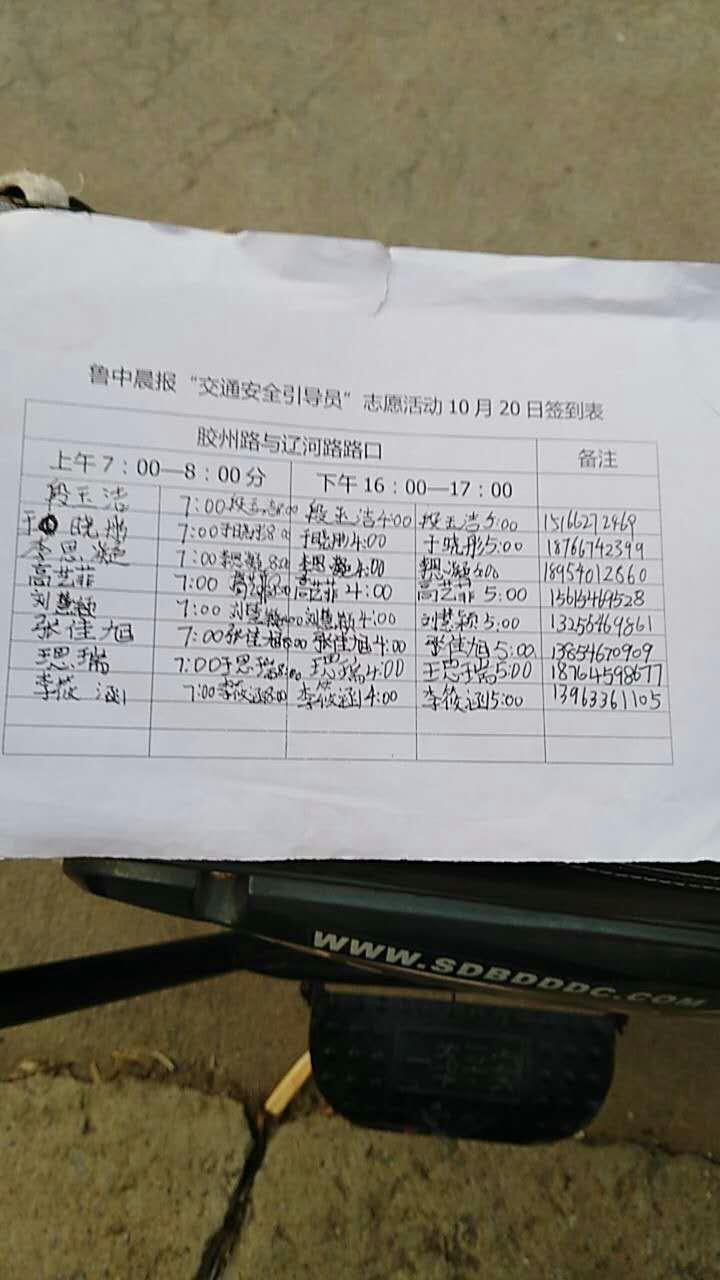 鲁中晨报“交通安全引导员”志愿活动10月20日签到表
胶州路与辽河路路口 备注
上午7：00—8：00分 下午16：00—17：00
段玉洁 7:00 段玉洁8:00 段玉洁4:00 段玉洁5:00 15166272469
于晓彤 7:00 于晓彤8:00 于晓彤4:00 于晓彤5:00 18766742399
李思凝 7:00 李思凝8:00 李思凝4:00 李思凝5:00 18954012660
高艺菲 7:00 高艺菲8:00 高艺菲4:00 高艺菲5:00 15615469528
刘慧颖 7:00 刘慧颖8:00 刘慧颖4:00 刘慧颖5:00 13256469861
张佳旭 7:00 张佳旭8:00 张佳旭4:00 张佳旭5:00 13854670909
王思瑞 7:00 王思瑞8:00 王思瑞4:00 王思瑞5:00 18764598677
李筱涵 7:00 李筱涵8:00 李筱涵4:00 李筱涵5:00 13963361105
WWW.SDBDDDC.COM